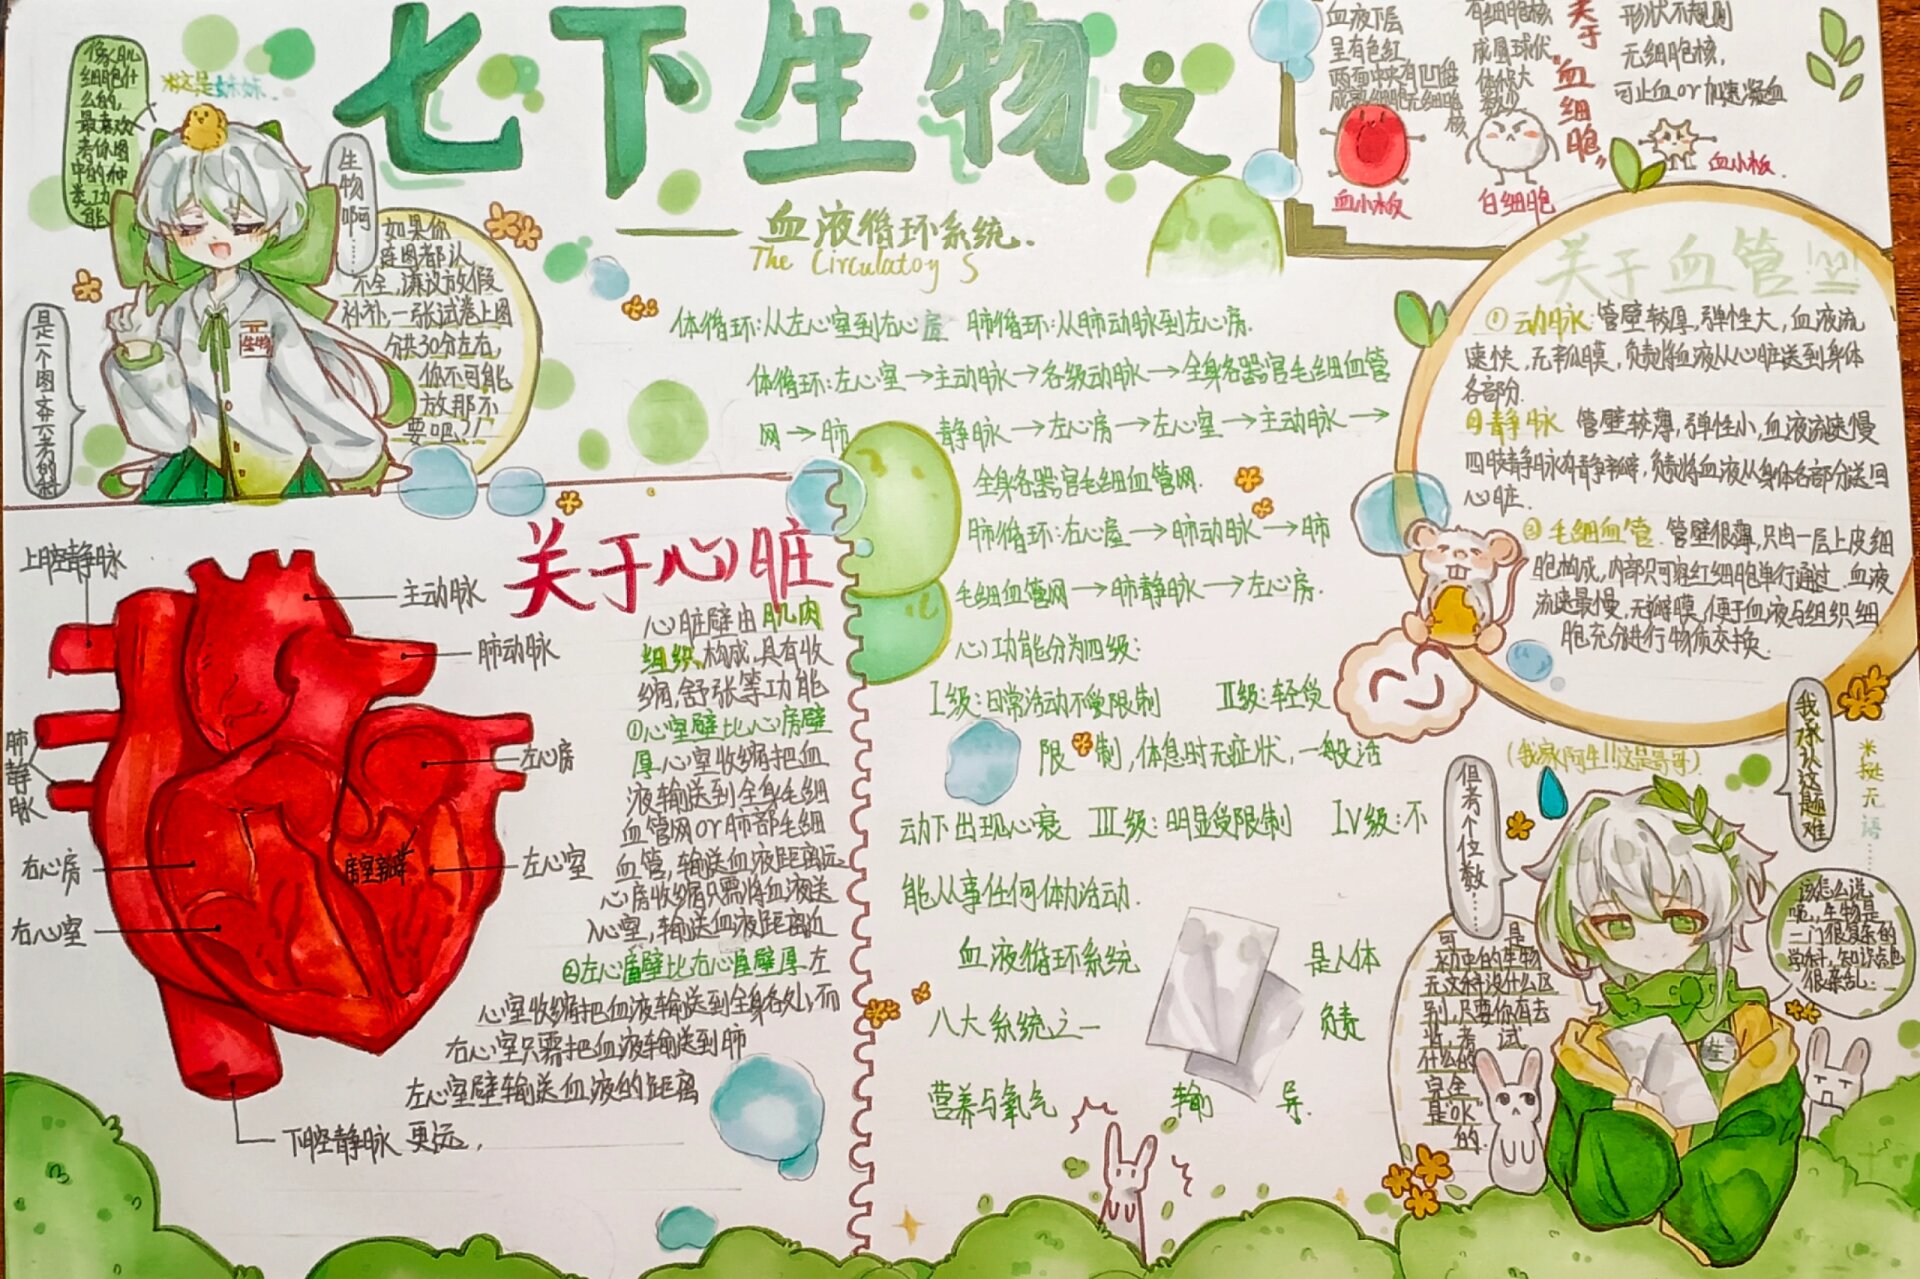 七下生物之
——血液循环系统.
The Circulatoy S
像肌
细胞什
么的,
最喜欢
考你图
中的种
类,功
能
*这是妹妹.
生物啊……
如果你
连图都认
不全,谦没放假
补补,一张试卷上图
分共30分左右,
你不可能
放那不
要吧?!
生物
血液下层
呈有色红
两面中央有凹陷
成熟细胞无细胞
核
血小板
有细胞核
成圆球状
体积大
数少
白细胞
关于"血细胞"
形状不规则
无细胞核,
可止血or加速凝血
血小板.
体循环:从左心室到右心房 肺循环:从肺动脉到左心房.
体循环:左心室→主动脉→各级动脉→全身各器官毛细血管
网→肺静脉→左心房→左心室→主动脉→
全身各器官毛细血管网.
肺循环:右心室→肺动脉→肺
毛细血管网→肺静脉→左心房.
心功能分为四级:
I级:日常活动不受限制 II级:轻受
限制,体息时无症状,一般活
动下出现心衰 III级:明显受限制 IV级:不
能从事任何体力活动.
血液循环系统是人体
八大系统之一负责
营养与氧气输导.
关于血管!!
①动脉:管壁较厚,弹性大,血液流
速快,无瓣膜,负责将血液从心脏送到身体
各部分.
②静脉 管壁较薄,弹性小,血液流速慢
四肢静脉有静脉瓣,负责将血液从身体各部分送回
心脏.
③毛细血管.管壁很薄,只由一层上皮细
胞构成,内部只可容红细胞单行通过.血液
流速最慢,无瓣膜,便于血液与组织细
胞充分进行物质交换.
关于心脏
上腔静脉
主动脉
肺动脉
肺静脉
左心房
右心房
房室瓣
左心室
右心室
下腔静脉
心脏壁由肌肉
组织构成,具有收
缩,舒张等功能
①心室壁比心房壁
厚心室收缩把血
液输送到全身毛细
血管网or肺部毛细
血管,输送血液距离远
心房收缩只需将血液送
入心室,输送血液距离近
②左心室壁比右心室壁厚.左
心室收缩把血液输送到全身各处,而
右心室只需把血液输送到肺
左心室壁输送血液的距离
更远,
(我家阿生!!这是哥哥)
但考个位数……
我承认这是题难
*挺无语……
该怎么说
呢,生物是
一门很复杂的
学科,知识点也
很杂乱:
可是
初中的生物
无文科没什么区
别,只要你有去
背,考试
什么的
完全
是"OK"
的.
生